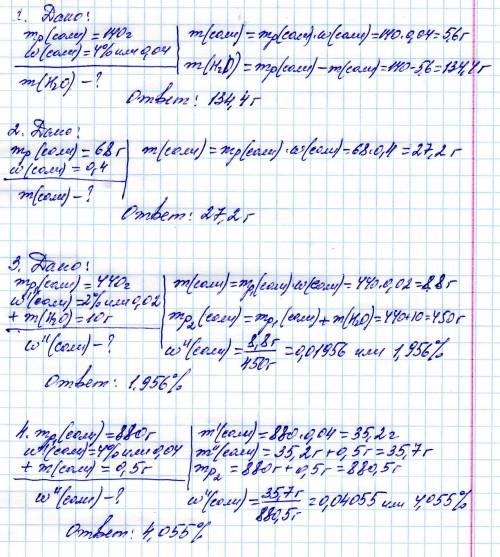 1. Дано:
mр(соли) = 140г
w(соли) = 4% или 0,04
m(H2O) - ?
m(соли) = mр(соли)·w(соли) = 140·0,04 = 5,6г
m(H2O) = mр(соли) - m(соли) = 140-5,6 = 134,4г
Ответ: 134,4г
2. Дано:
mр(соли) = 68г
w(соли) = 0,4
m(соли) - ?
m(соли) = mр(соли)·w(соли) = 68·0,4 = 27,2г
Ответ: 27,2г
3. Дано:
mр(соли) = 440г
w'(соли) = 2% или 0,02
+ m(H2O) = 10г
w"(соли) - ?
m(соли) = mр(соли)·w(соли) = 440·0,02 = 8,8г
mр2(соли) = mр1(соли) + m(H2O) = 440+10 = 450г
w"(соли) = 8,8г / 450г = 0,01956 или 1,956%
Ответ: 1.956%
4. mр(соли) = 880г
w'(соли) = 4% или 0,04
+ m(соли) = 0,5г
w"(соли) - ?
m'(соли) = 880·0,04 = 35,2г
m"(соли) = 35,2г + 0,5г = 35,7г
mр2 = 880г + 0,5г = 880,5г
w"(соли) = 35,7г / 880,5г = 0,04055 или 4,055%
Ответ: 4,055%